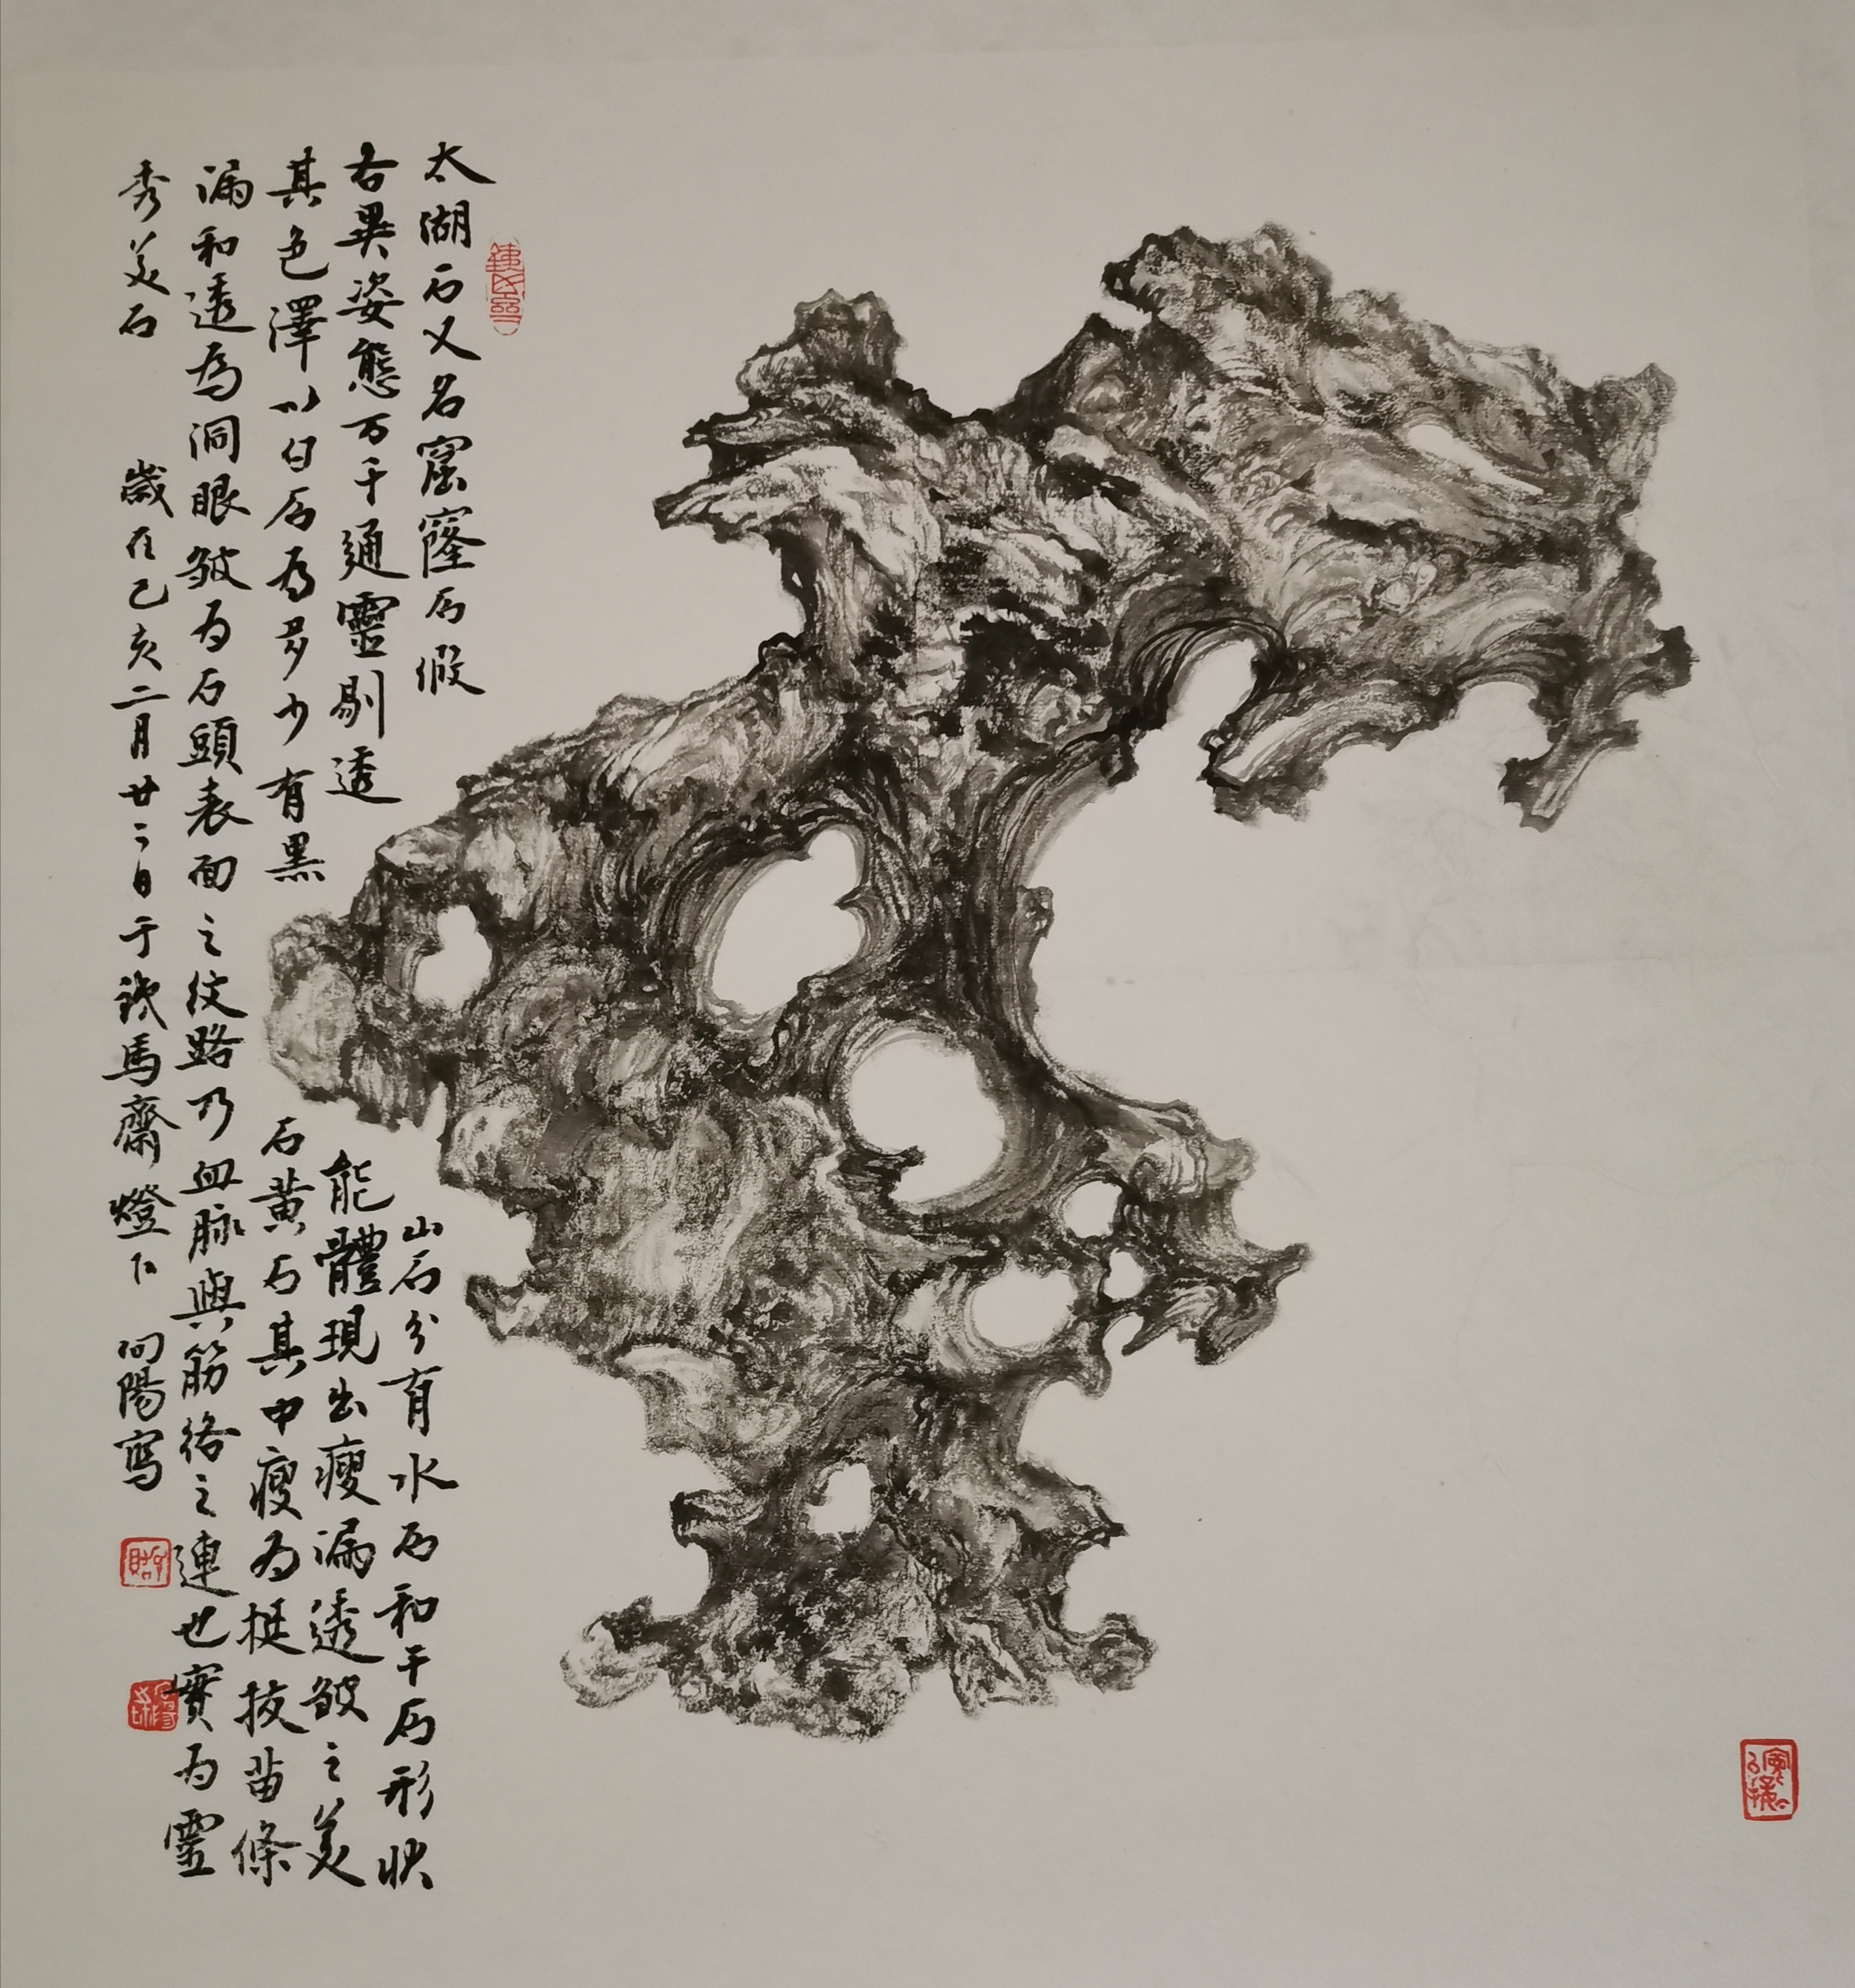 太湖石又名窟窿石假山石分有水石和干石形狀
右異姿態万千通靈剔透能體現出瘦漏透皴之美
其色澤以白石為多少有黑石黄石其中瘦为挺拔苗條
漏和透為洞眼皴为石頭表面之纹路乃血脉與筋络之連也實为靈
秀美石
歲在己亥二月廿二日于鐵馬齋燈下 向陽寫